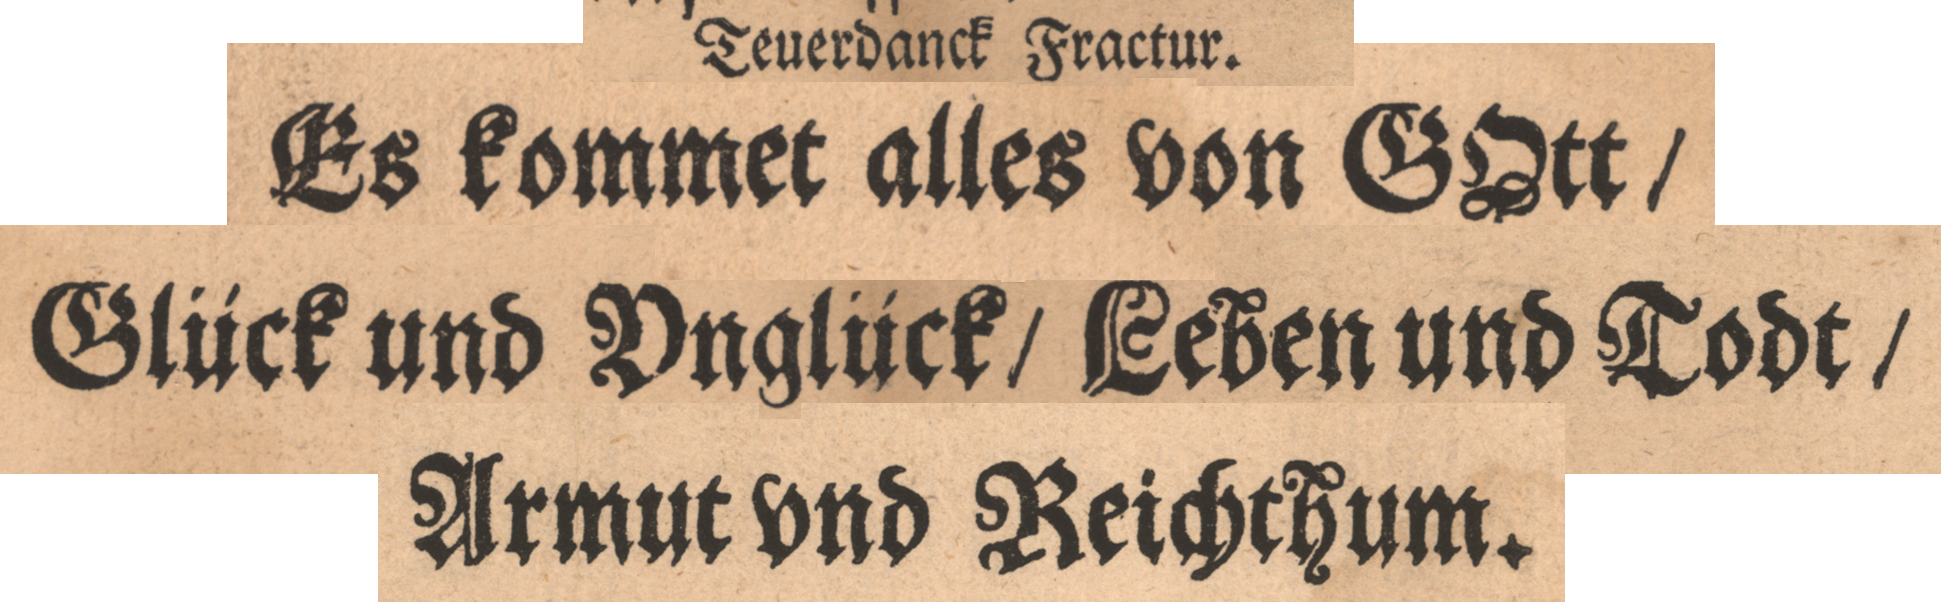 Teuerdanck Fractur.
Es kommet alles von GOtt /
Glück und Vnglück / Leben und Todt /
Armut vnd Reichthum.